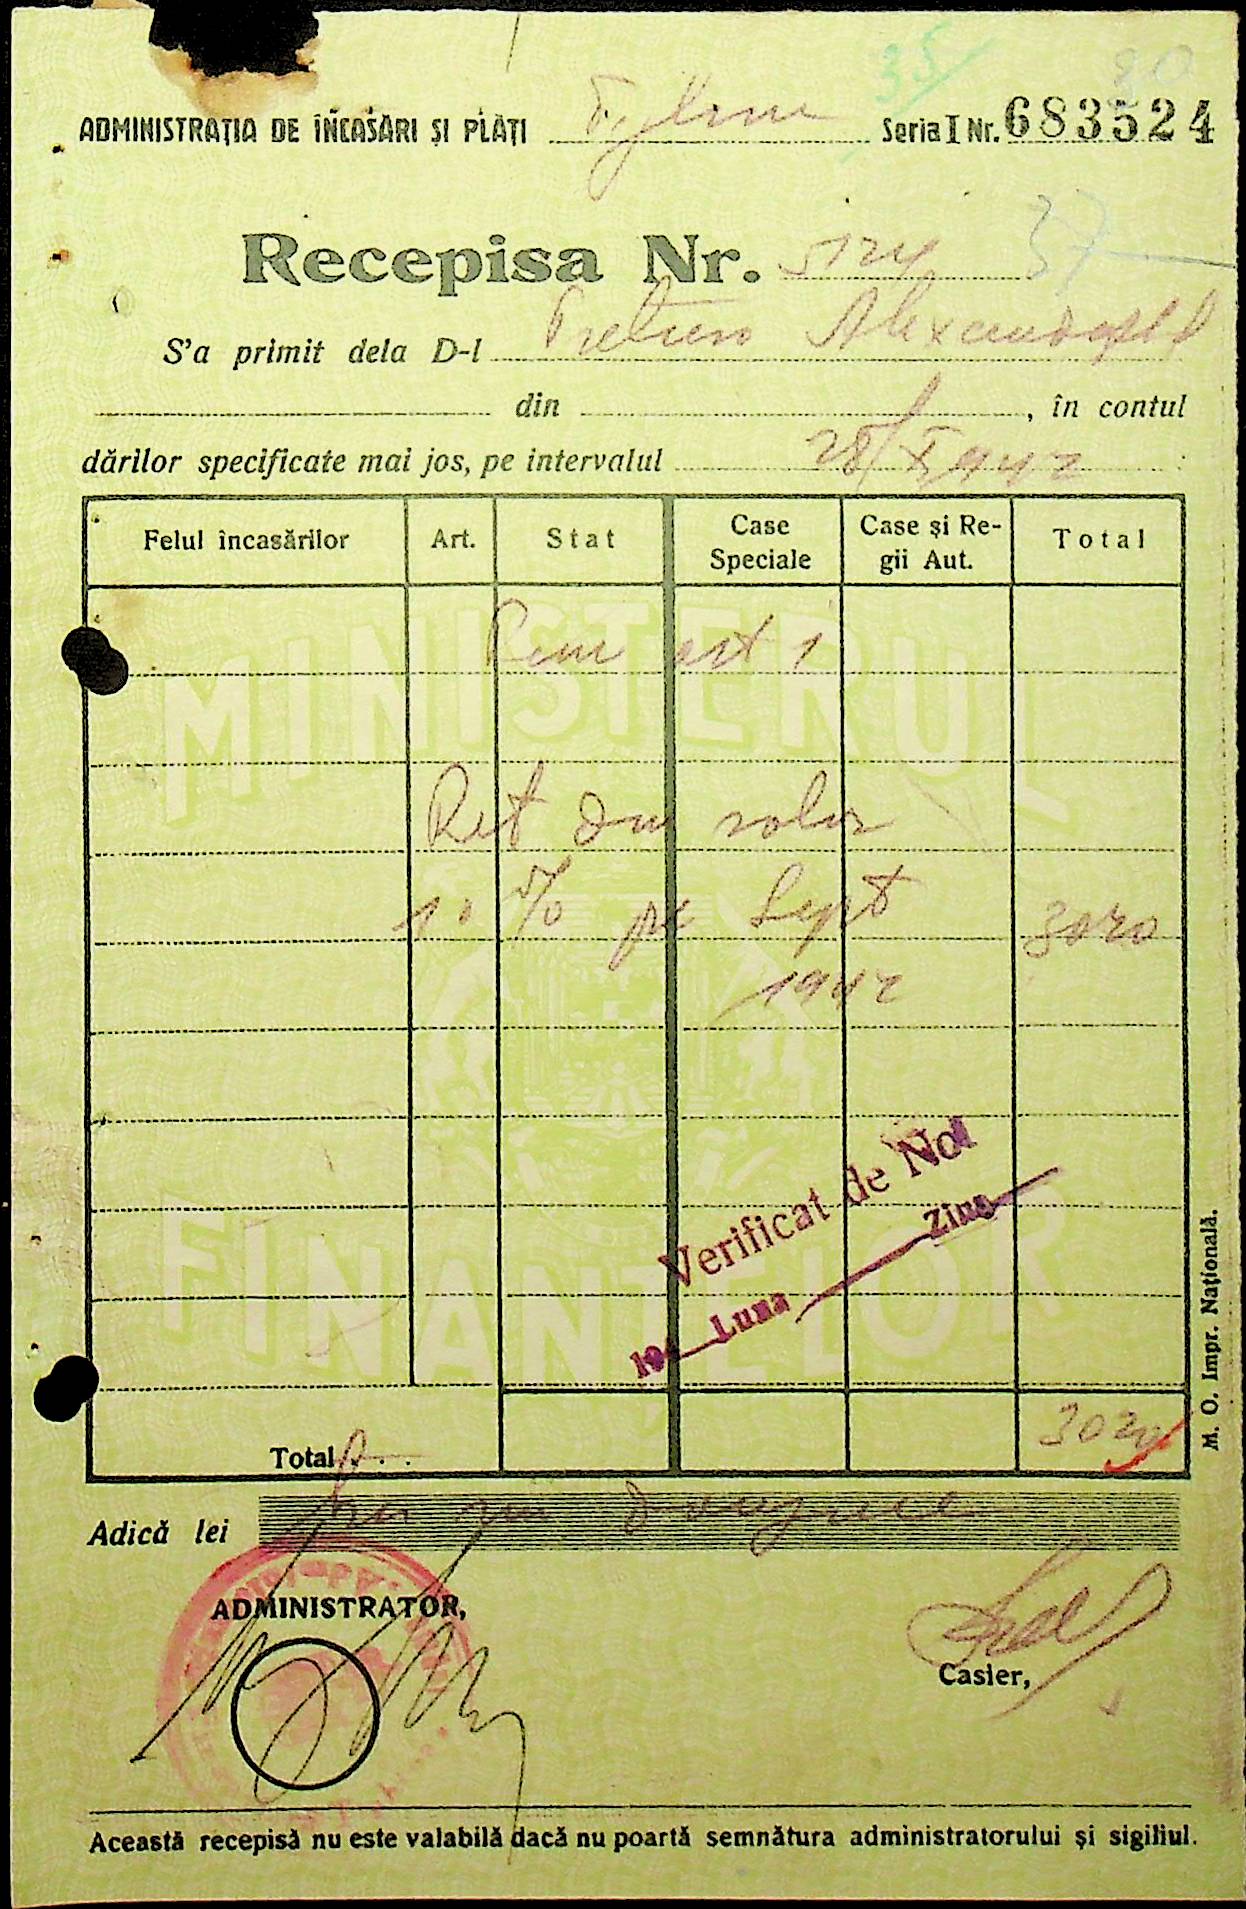 35 20
ADMINISTRAȚIA DE ÎNCASĂRI ȘI PLĂȚI Seria I Nr. 683524
Recepisa Nr. 5124 37
S'a primit dela D-l Alexandru
din , în contul
dărilor specificate mai jos, pe intervalul 28/X 942
Felul încasărilor Art. Stat Case Speciale Case și Regii Aut. Total
art 1
Ret din
10 % pe Sept 3020
1942
Verificat de Noi
194 Luna Ziua
Total . . . 3020
Adică lei trei mii douăzeci
ADMINISTRATOR,
Casier,
Această recepisă nu este valabilă dacă nu poartă semnătura administratorului și sigiliul.
M. O. Impr. Națională.
MINISTERUL
FINANȚELOR